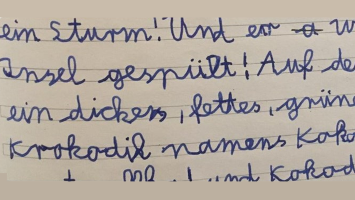 ein Sturm! Und er
Insel gespült! Auf de
ein dickes, fettes, grüne
Krokodil namens Koko
und Kokod